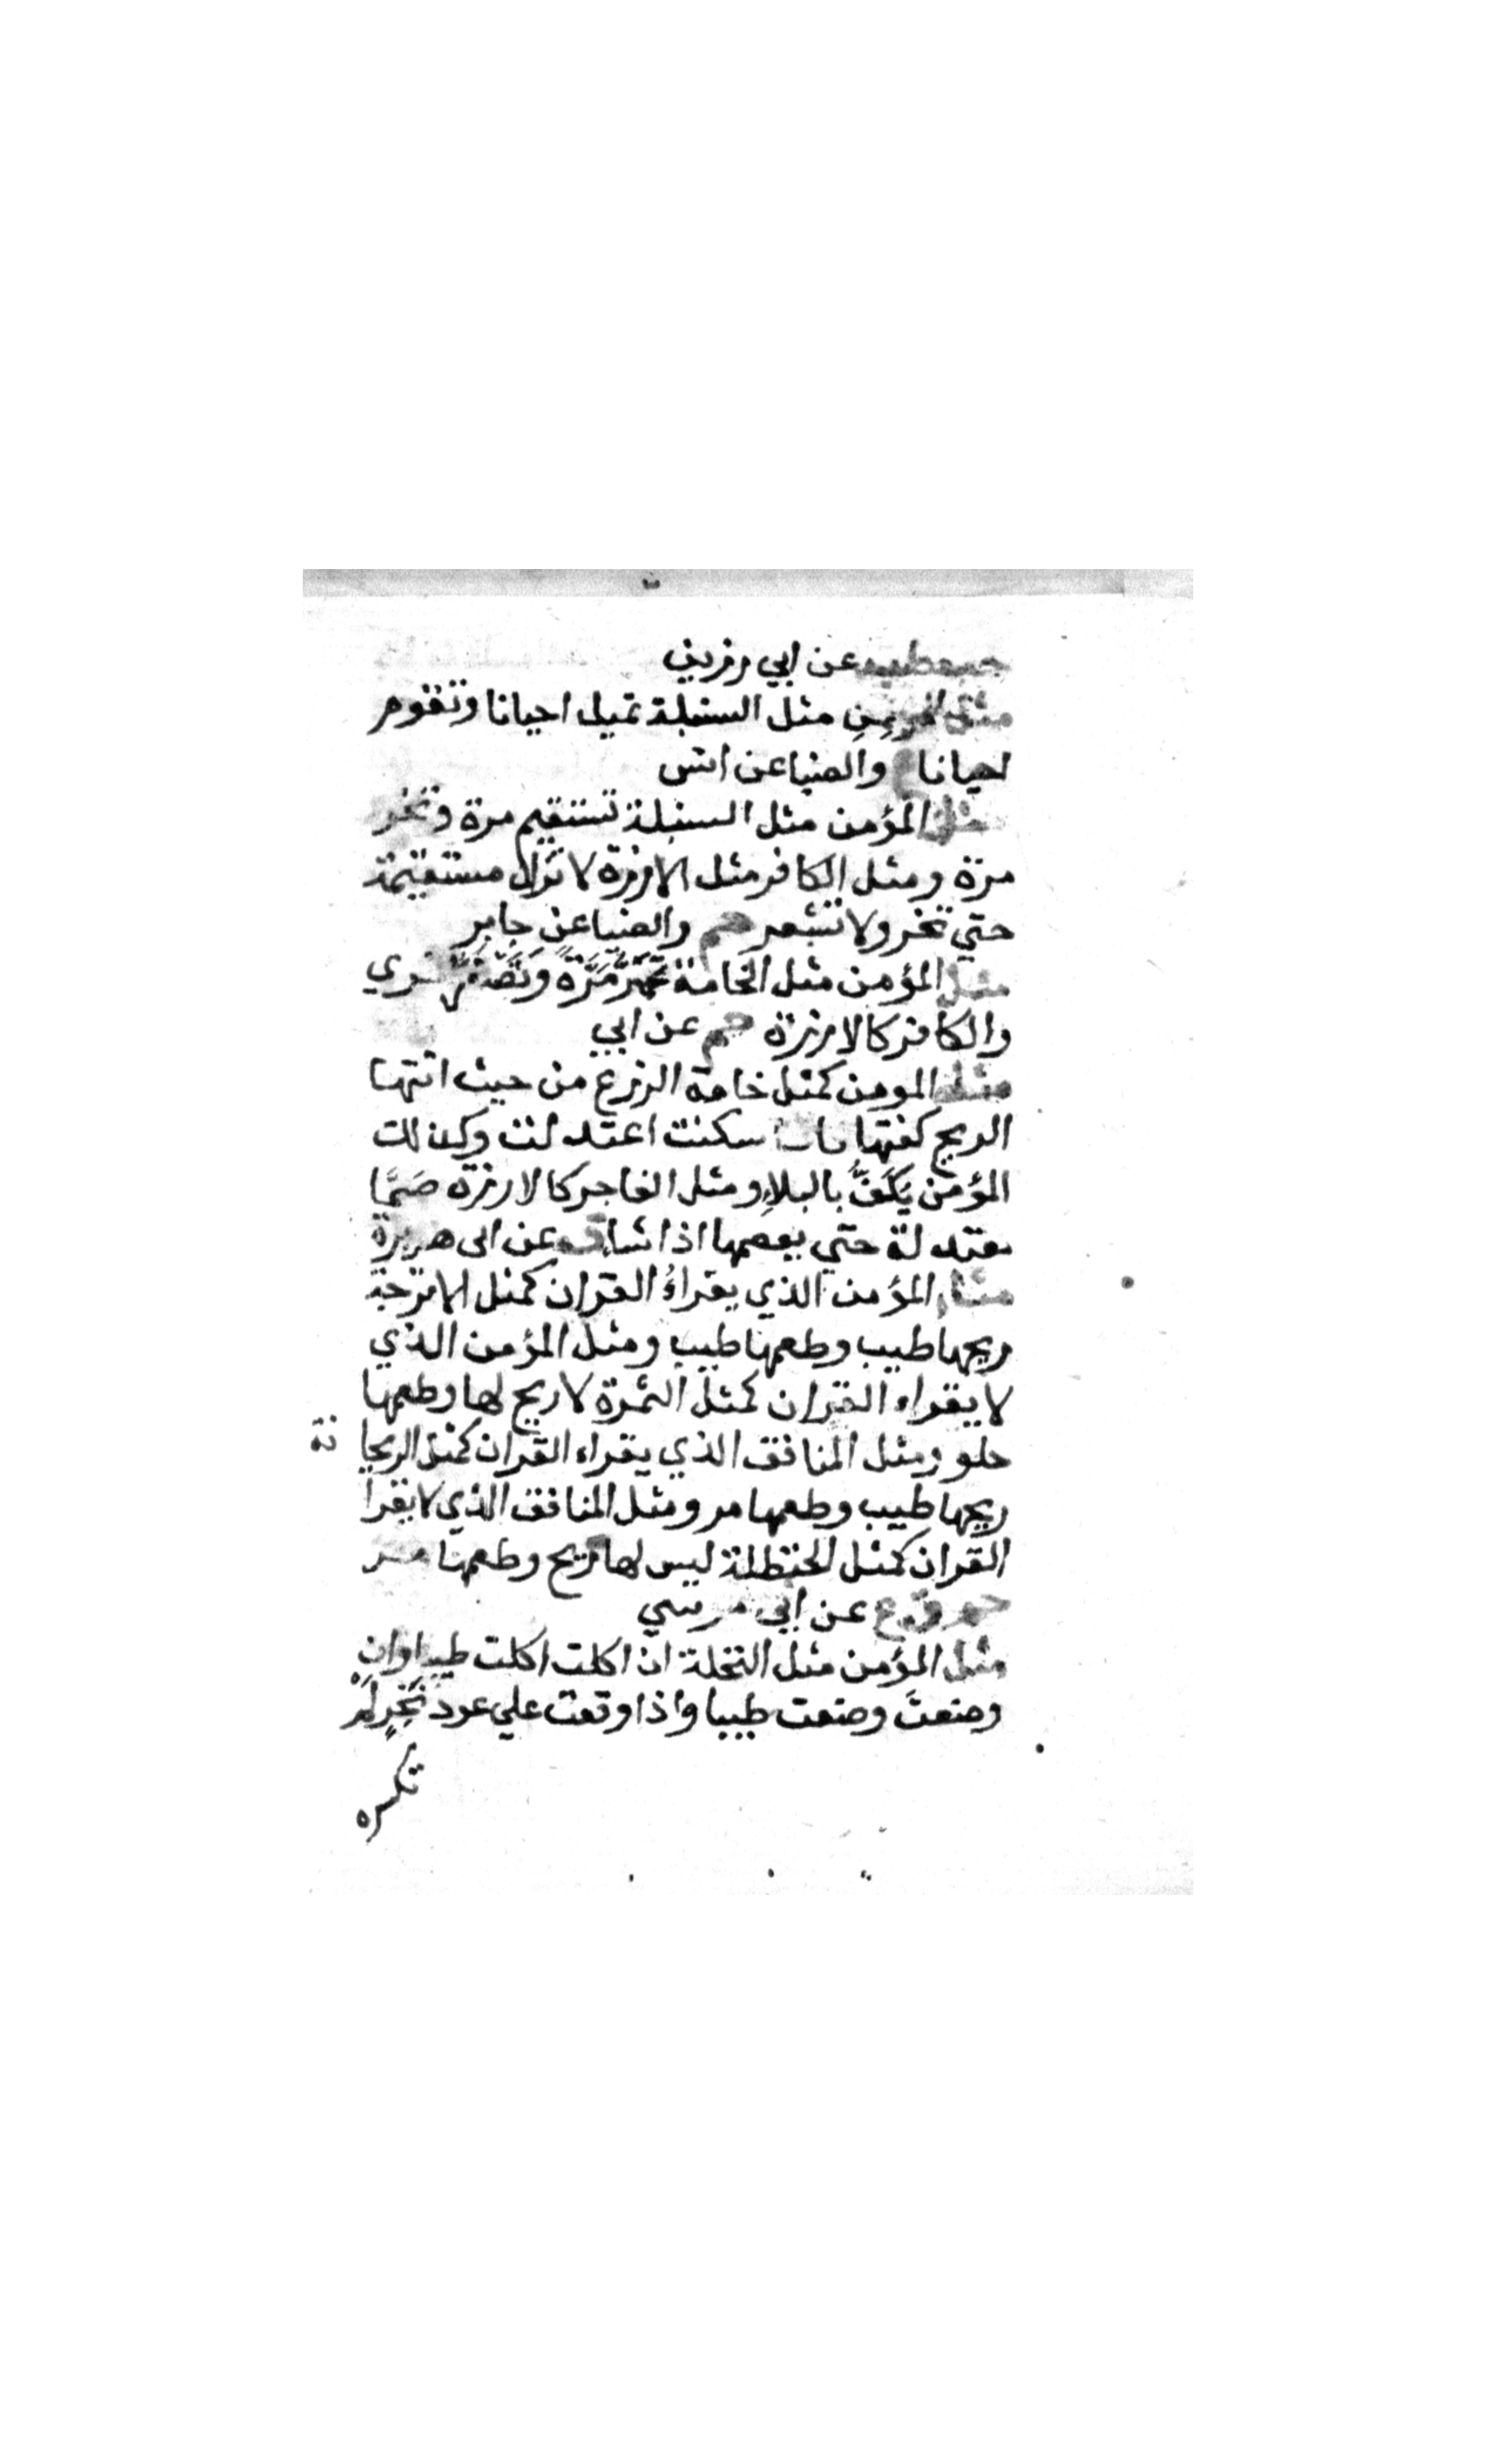 حب طب عن ابي رزين
مثل المؤمن مثل السنبلة تميل احيانا وتقوم
احيانا ع والضيا عن انس
مثل المؤمن مثل السنبلة تستقيم مرة وتخر
مرة ومثل الكافر مثل الارزة لا تزال مستقيمة
حتي تخر ولا تشعر حم والضيا عن جابر
مثل المؤمن مثل الخامة تحمر مرة وتصفر اخري
والكافر كالارزة حم عن ابي
مثل المومن كمثل خامة الزرع من حيث اتتها
الريح كفتها فاذا سكنت اعتدلت وكذلك
المؤمن يكفأ بالبلاء ومثل الفاجر كالارزة صما
معتدلة حتي يعصمها اذا شا ق عن ابى هريرة
مثل المؤمن الذي يقراء القران كمثل الاترجة
ريحها طيب وطعمها طيب ومثل المؤمن الذي
لا يقراء القران كمثل التمرة لا ريح لها وطعمها
حلو ومثل المنافق الذي يقراء القران كمثل الريحا نة
ريحها طيب وطعمها مر ومثل المنافق الذي لا يقرا
القران كمثل الحنظلة ليس لها ريح وطعمها مر
حم ق ع عن ابي موسي
مثل المؤمن مثل النخلة ان اكلت اكلت طيبا وان
وضعت وضعت طيبا واذا وقعت علي عود نخر لم
تكسره